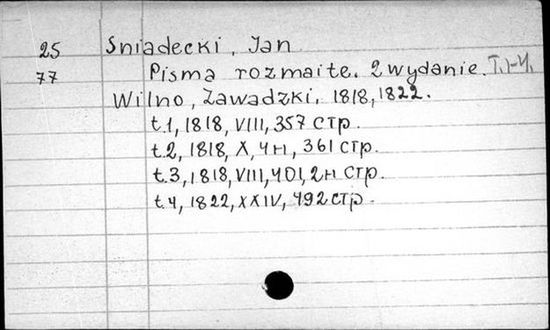 25 Sniadecki, Jan
77 Pisma rozmaite. 2 wydanie. T. 1-4.
Wilno, Zawadzki, 1818, 1822.
t.1, 1818, VIII, 357 стр.
t.2, 1818, X, 4н, 361 стр.
t.3, 1818, VIII, 401, 2н стр.
t.4, 1822, XXIV, 492 стр.